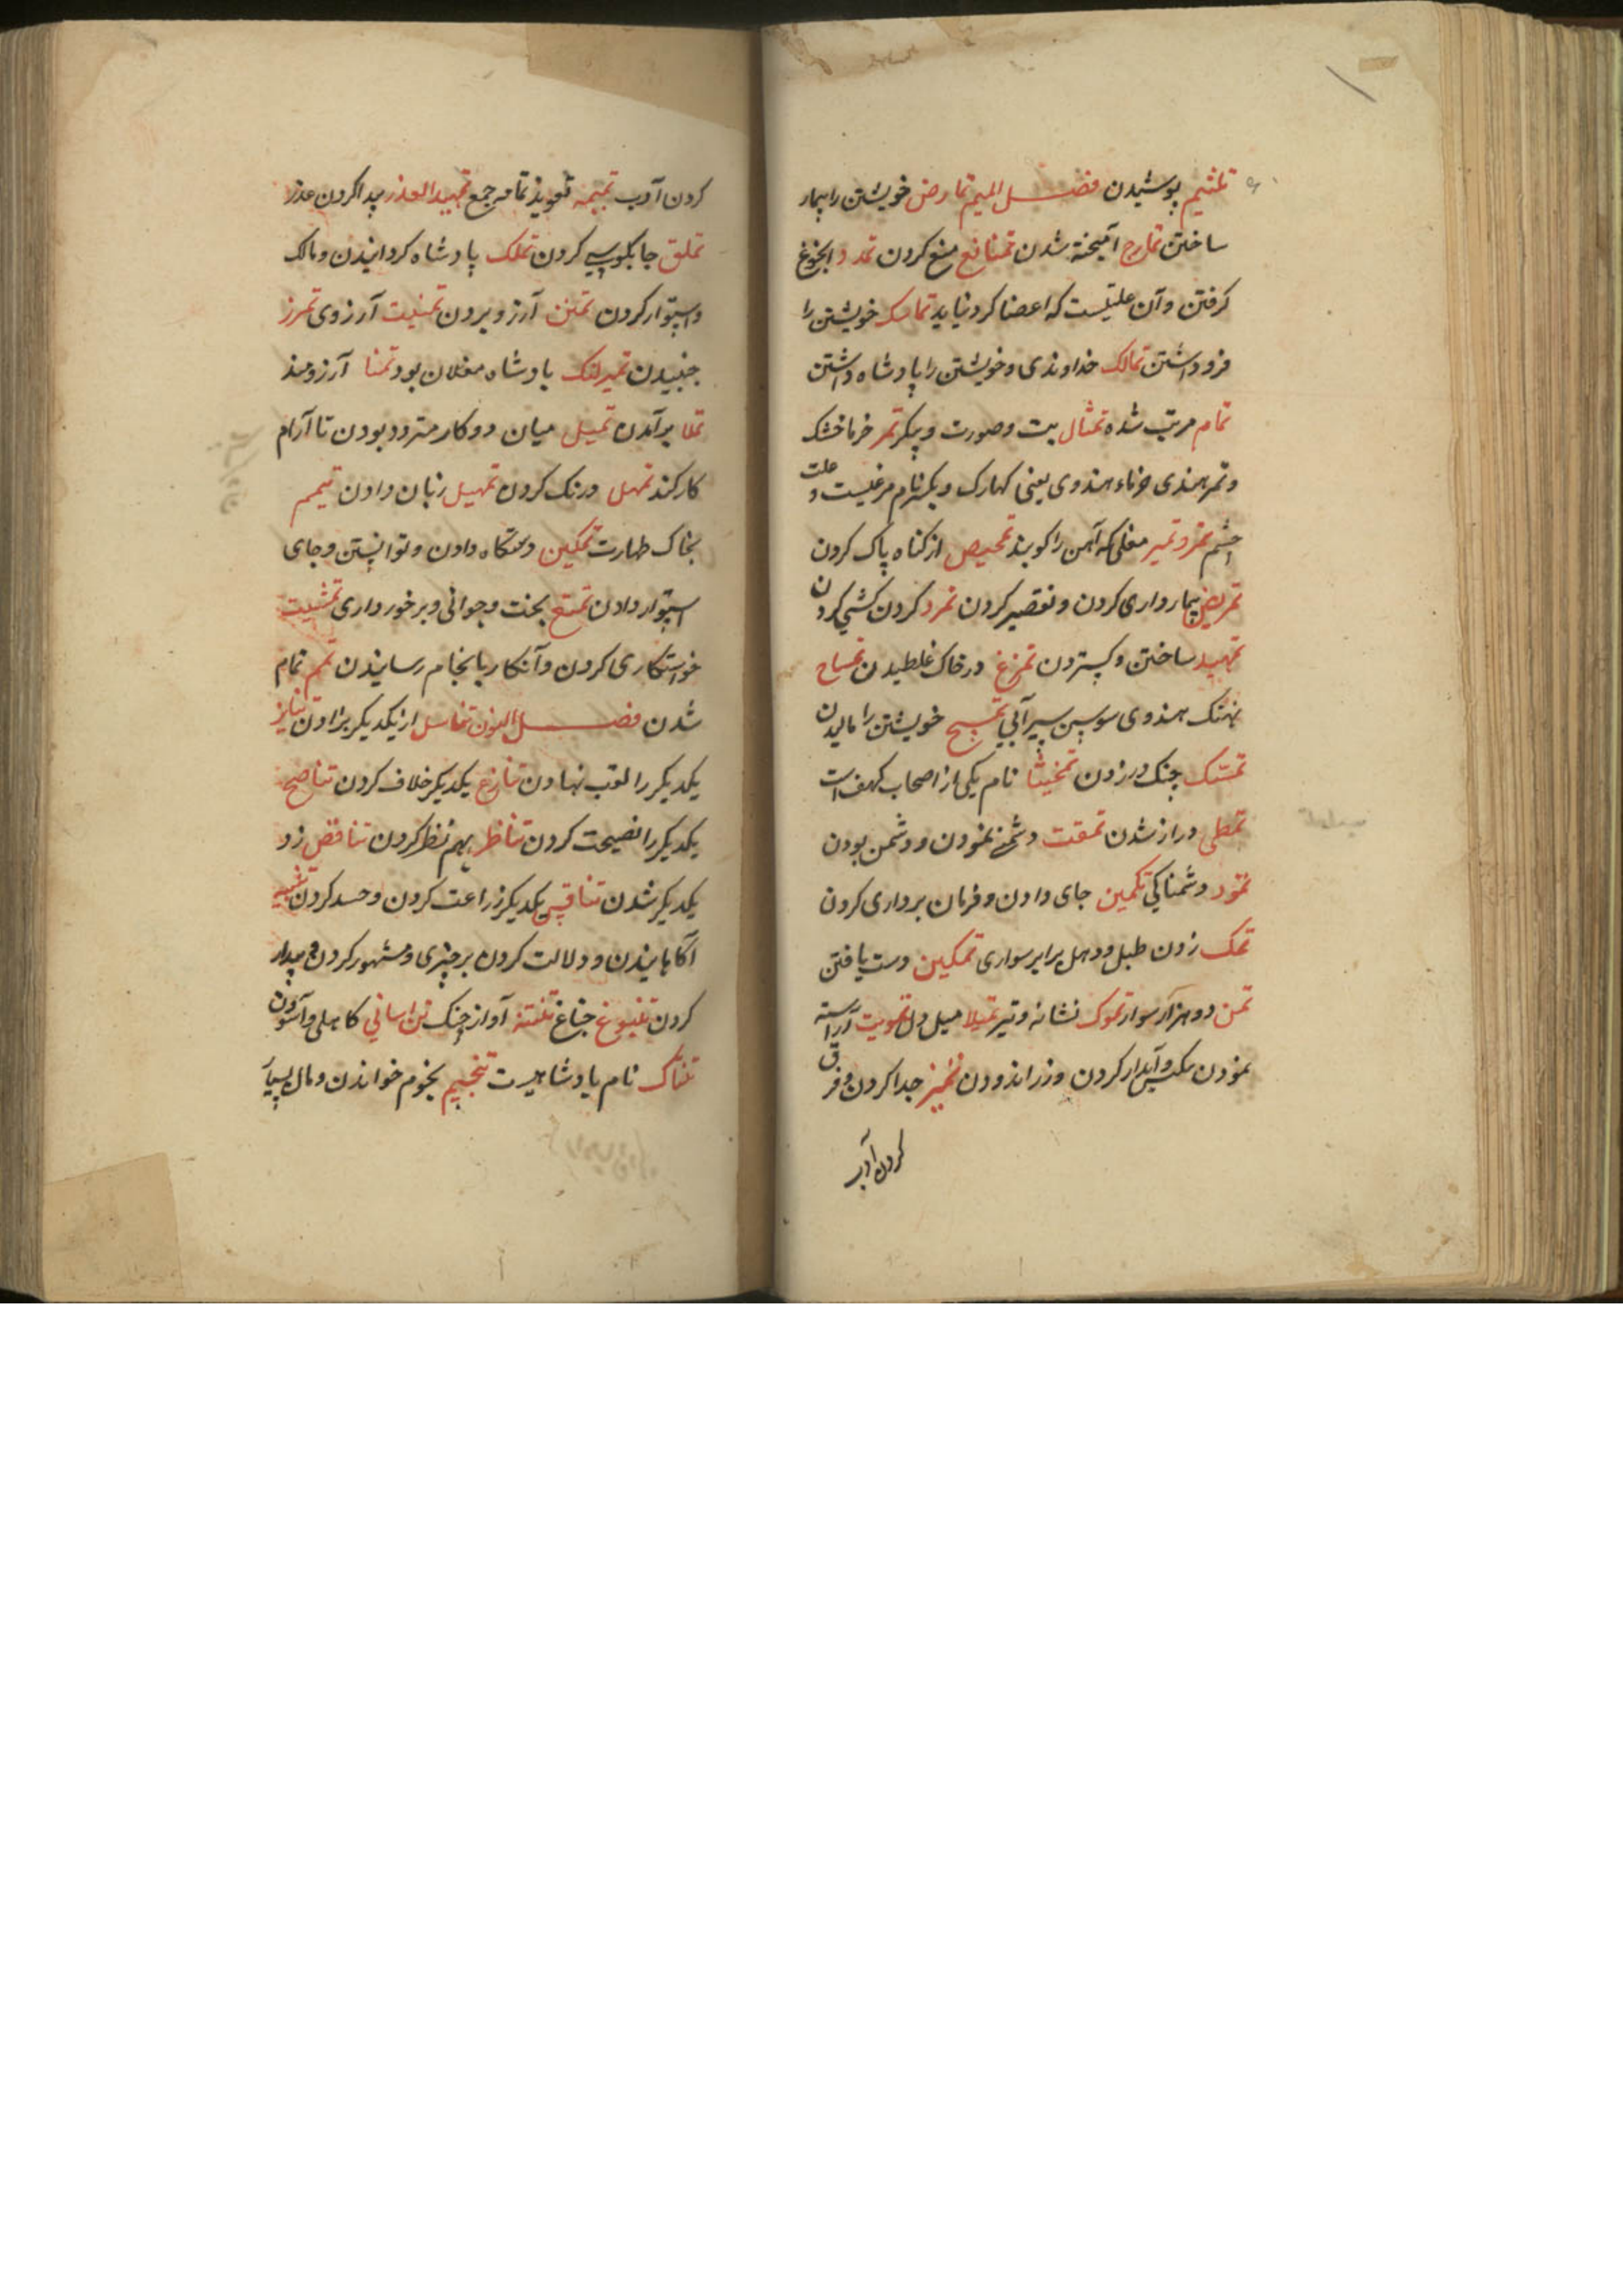 تلثیم پوشیدن فصل المیم تمارض خویشتن را بیمار
ساختن تمارج آمیخته شدن تمانع منع کردن تمدد
کرفتن و آن علتیست که اعضا کرد نیاید تماسک خویشتن را
فرو داشتن تمالک خداوندی و خویشتن را پادشاه داشتن
تمام مرتب شده تمثال بت و صورت و پیکر تمر خرما خشک
و تمر هندی خرماء هندوی یعنی کهارک و یکنر نام مرغیست و علت
چشم تمر و تمیر مغلی که آهن را کوبند تمحیص از کناه پاک کردن
تمریض بیمار داری کردن و تقصیر کردن تمرد کردن کشی کردن
تمهید ساختن و کسپتردن تمرغ در خاک غلطیدن تمساح
نهنک هندوی سوسپن سپر آبی تمسح خویشتن را مالیدن
تمسک چنک در زدن تمخیثا نام یکی از اصحاب کهف است
تمطی دراز شدن تمقت دشمنی نمودن و دشمن بودن
تمود دشمناکی تکمین جای دادن و فرمان برداری کردن
تمک زدن طبل و دهل برابر سواری تمکین دست یافتن
تمن دو هزار سوار تموک نشانه و تیر تمیلا میل دل تمویت آراسته
نمودن مکیس و آبدار کردن و زر اندودن تمیز جدا کردن و فرق
کردن آدب
کردن آدب تمیمه تعویذ تمام جمع تمهید العذر پیدا کردن عذر
تملق جابلوسی کردن تملک پادشاه کردانیدن و مالک
واسپتوار کردن تمنن آرزو بردن تمنیت آرزوی تمرز
جنبیدن تمیرلنک بادشاه مغلان بود تمنا آرزومند
تملا بر آمدن تمیل میان دو کار متردد بودن تا آرام
کار کند تمهل درنک کردن تمهیل زبان دادن تیمم
بخاک طهارت تمکین دستکاه دادن و توانپستن و جای
اسپتوار دادن تمتع بخت و جوانی و برخورداری تمشیت
خواستکاری کردن و آنکار با بانجام رسانیدن تم تمام
شدن فصل النون تناسل از یکدیکر بزادن تنابز
یکدیکر را لقب نهادن تنازع یکدیکر خلاف کردن تناصح
یکدیکر را نصیحت کردن تناظر بهم نظر کردن تناقض زد
یکدیکر شدن تنافس یکدیکر زراعت کردن و حسد کردن تنبیه
آکاهانیدن و دلالت کردن بر چیزی و مشهور کردن و بیدار
کردن تنبوغ جناغ تنتنه آواز چنک تن اسانی کاهلی و آسودن
تنناک نام پادشاهیست تنجیم نجوم خواندن و مال